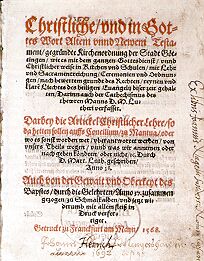 Christliche/ vnd in Got-
tes Wort Altem vnnd Newem Testa-
ment/ gegründte Kirchenordnung der Stadt
wie es mit dem gantzen Gottesdienst/ vnnd
Christlicher weise in Kirchen vnd Schulen/ mit Lehr
vnd Sacramentreichung/ Ceremonien vnd Ordnun-
gen/ nach bewertem grund des Rechten/ reynen vnd
klare Liechtes des heiligen Euangelij biß her gehal-
ten/ Darinn auch der Catechismus des
thewren Manns D. M. Lu-
thers verfasset.
Darbey die Artickel Christlicher Lehre/ so
da hetten sollen auffs Concilium/ zu Mantua/ oder
wo es sonst worden wer/ vberantwortet werden/ von
vnsers Theils wegen/ vnnd was wir annemen oder
nach geben köndten/ oder nicht/ etc. Durch
D. Mart. Luth. geschrieben/
Anno 38.
Auch von der Gewalt vnd Oberkeyt des
Bapstes/ durch die Gelehrten/ Anno 37. zusammen
gezogen zu Schmalkalden/ vnd jetz wi-
derumb mit allem fleiß in
Druck verfer-
tiget.
Getruckt zu Franckfurt am Mayn/ 1568.
1692